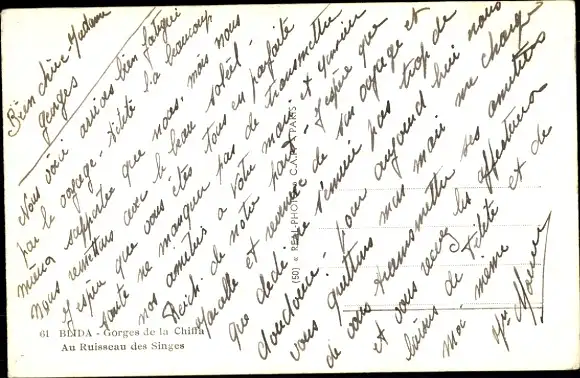 Bien chère Madame
Georges
Nous voici arrivés bien fatigués
par le voyage - Titité l'a beaucoup
mieux supporté que nous, mais nous
nous remettons avec le beau soleil -
J'espère que vous êtes tous en parfaite
santé ne manquer pas de transmettre
nos amitiés à votre mari et Monsieur
Reich. de notre part - J'espère que
est revenue de son voyage et
que Dédé ne s'ennuie pas trop de
doudou - pour aujourd'hui nous
vous quittons mas mari me charge
de vous transmettre ses amitiés
et vous recevez les affectueux
baisers de Titité et de
moi même
(50) « REAL-PHOTO » C.A.P. PARIS
61 BLIDA - Gorges de la Chiffa
Au Ruisseau des Singes